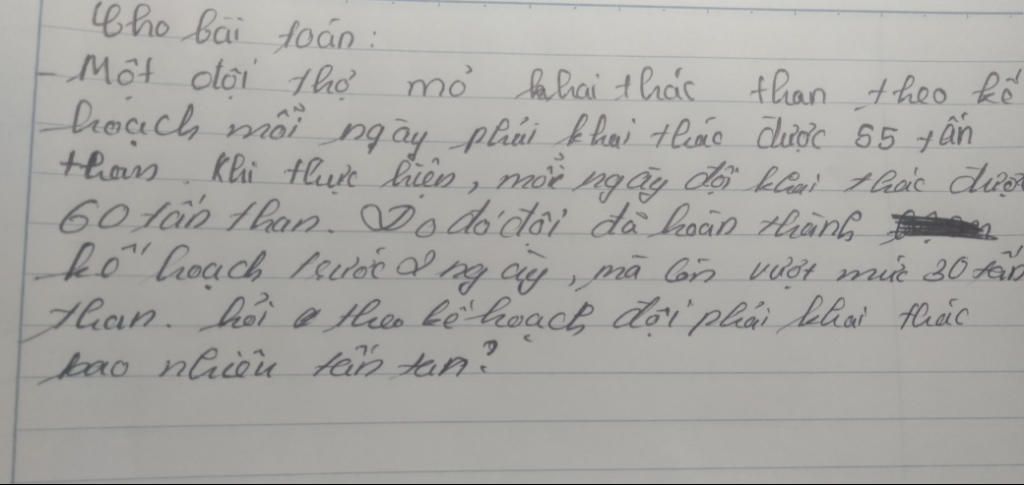 Cho bài toán:
- Một đội thợ mỏ khai thác than theo kế
hoạch mỗi ngày phải khai thác được 55 tấn
than. Khi thực hiện, mỗi ngày đội khai thác được
60 tấn than. Do đó đội đã hoàn thành
kế hoạch trước ngày, mà còn vượt mức 30 tấn
than. hỏi theo kế hoạch đội phải khai thác
bao nhiêu tấn tan?